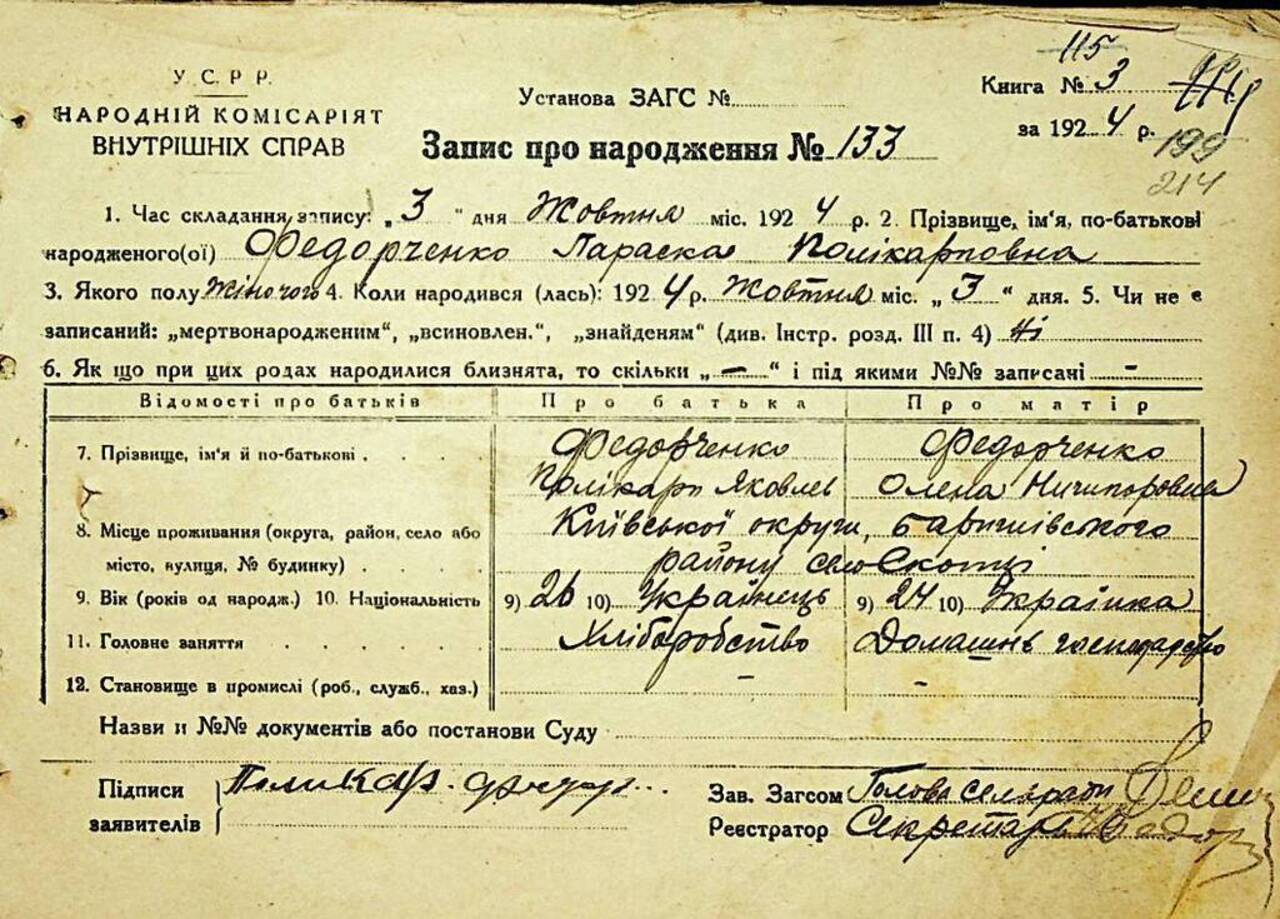 У.С.Р.Р.
НАРОДНІЙ КОМІСАРІЯТ
ВНУТРІШНІХ СПРАВ
Установа ЗАГС №
115
Книга № 3
за 1924 р.
199
214
Запис про народження № 133
1. Час складання запису: „3" дня Жовтня міс. 1924 р. 2. Прізвище, ім'я, по-батькові
народженого(ої) Федорченко Параска Полікарповна
3. Якого полу Жіночого 4. Коли народився (лась): 1924 р. Жовтня міс. „3" дня. 5. Чи не є
записаний: „мертвонародженим", „всиновлен.", „знайденям" (див. Інстр. розд. III п. 4) Ні
6. Як що при цих родах народилися близнята, то скільки „—" і під якими №№ записані -
Відомості про батьків Про батька Про матір
7. Прізвище, ім'я й по-батькові Федорченко Федорченко
Полікарп Яковлев Олена Ничипоровна
8. Місце проживання (округа, район, село або Київської округи, Баришівського
місто, вулиця, № будинку) району село Скопці
9. Вік (років од народж.) 10. Національність 9) 26 10) Українець 9) 24 10) Українка
11. Головне заняття Хліборобство Домашнє господарство
12. Становище в промислі (роб., служб., хаз.) - -
Назви и №№ документів або постанови Суду
Підписи Поликар. Федор...
заявителів
Зав. Загсом Голова Сельради
Реєстратор Секретарь